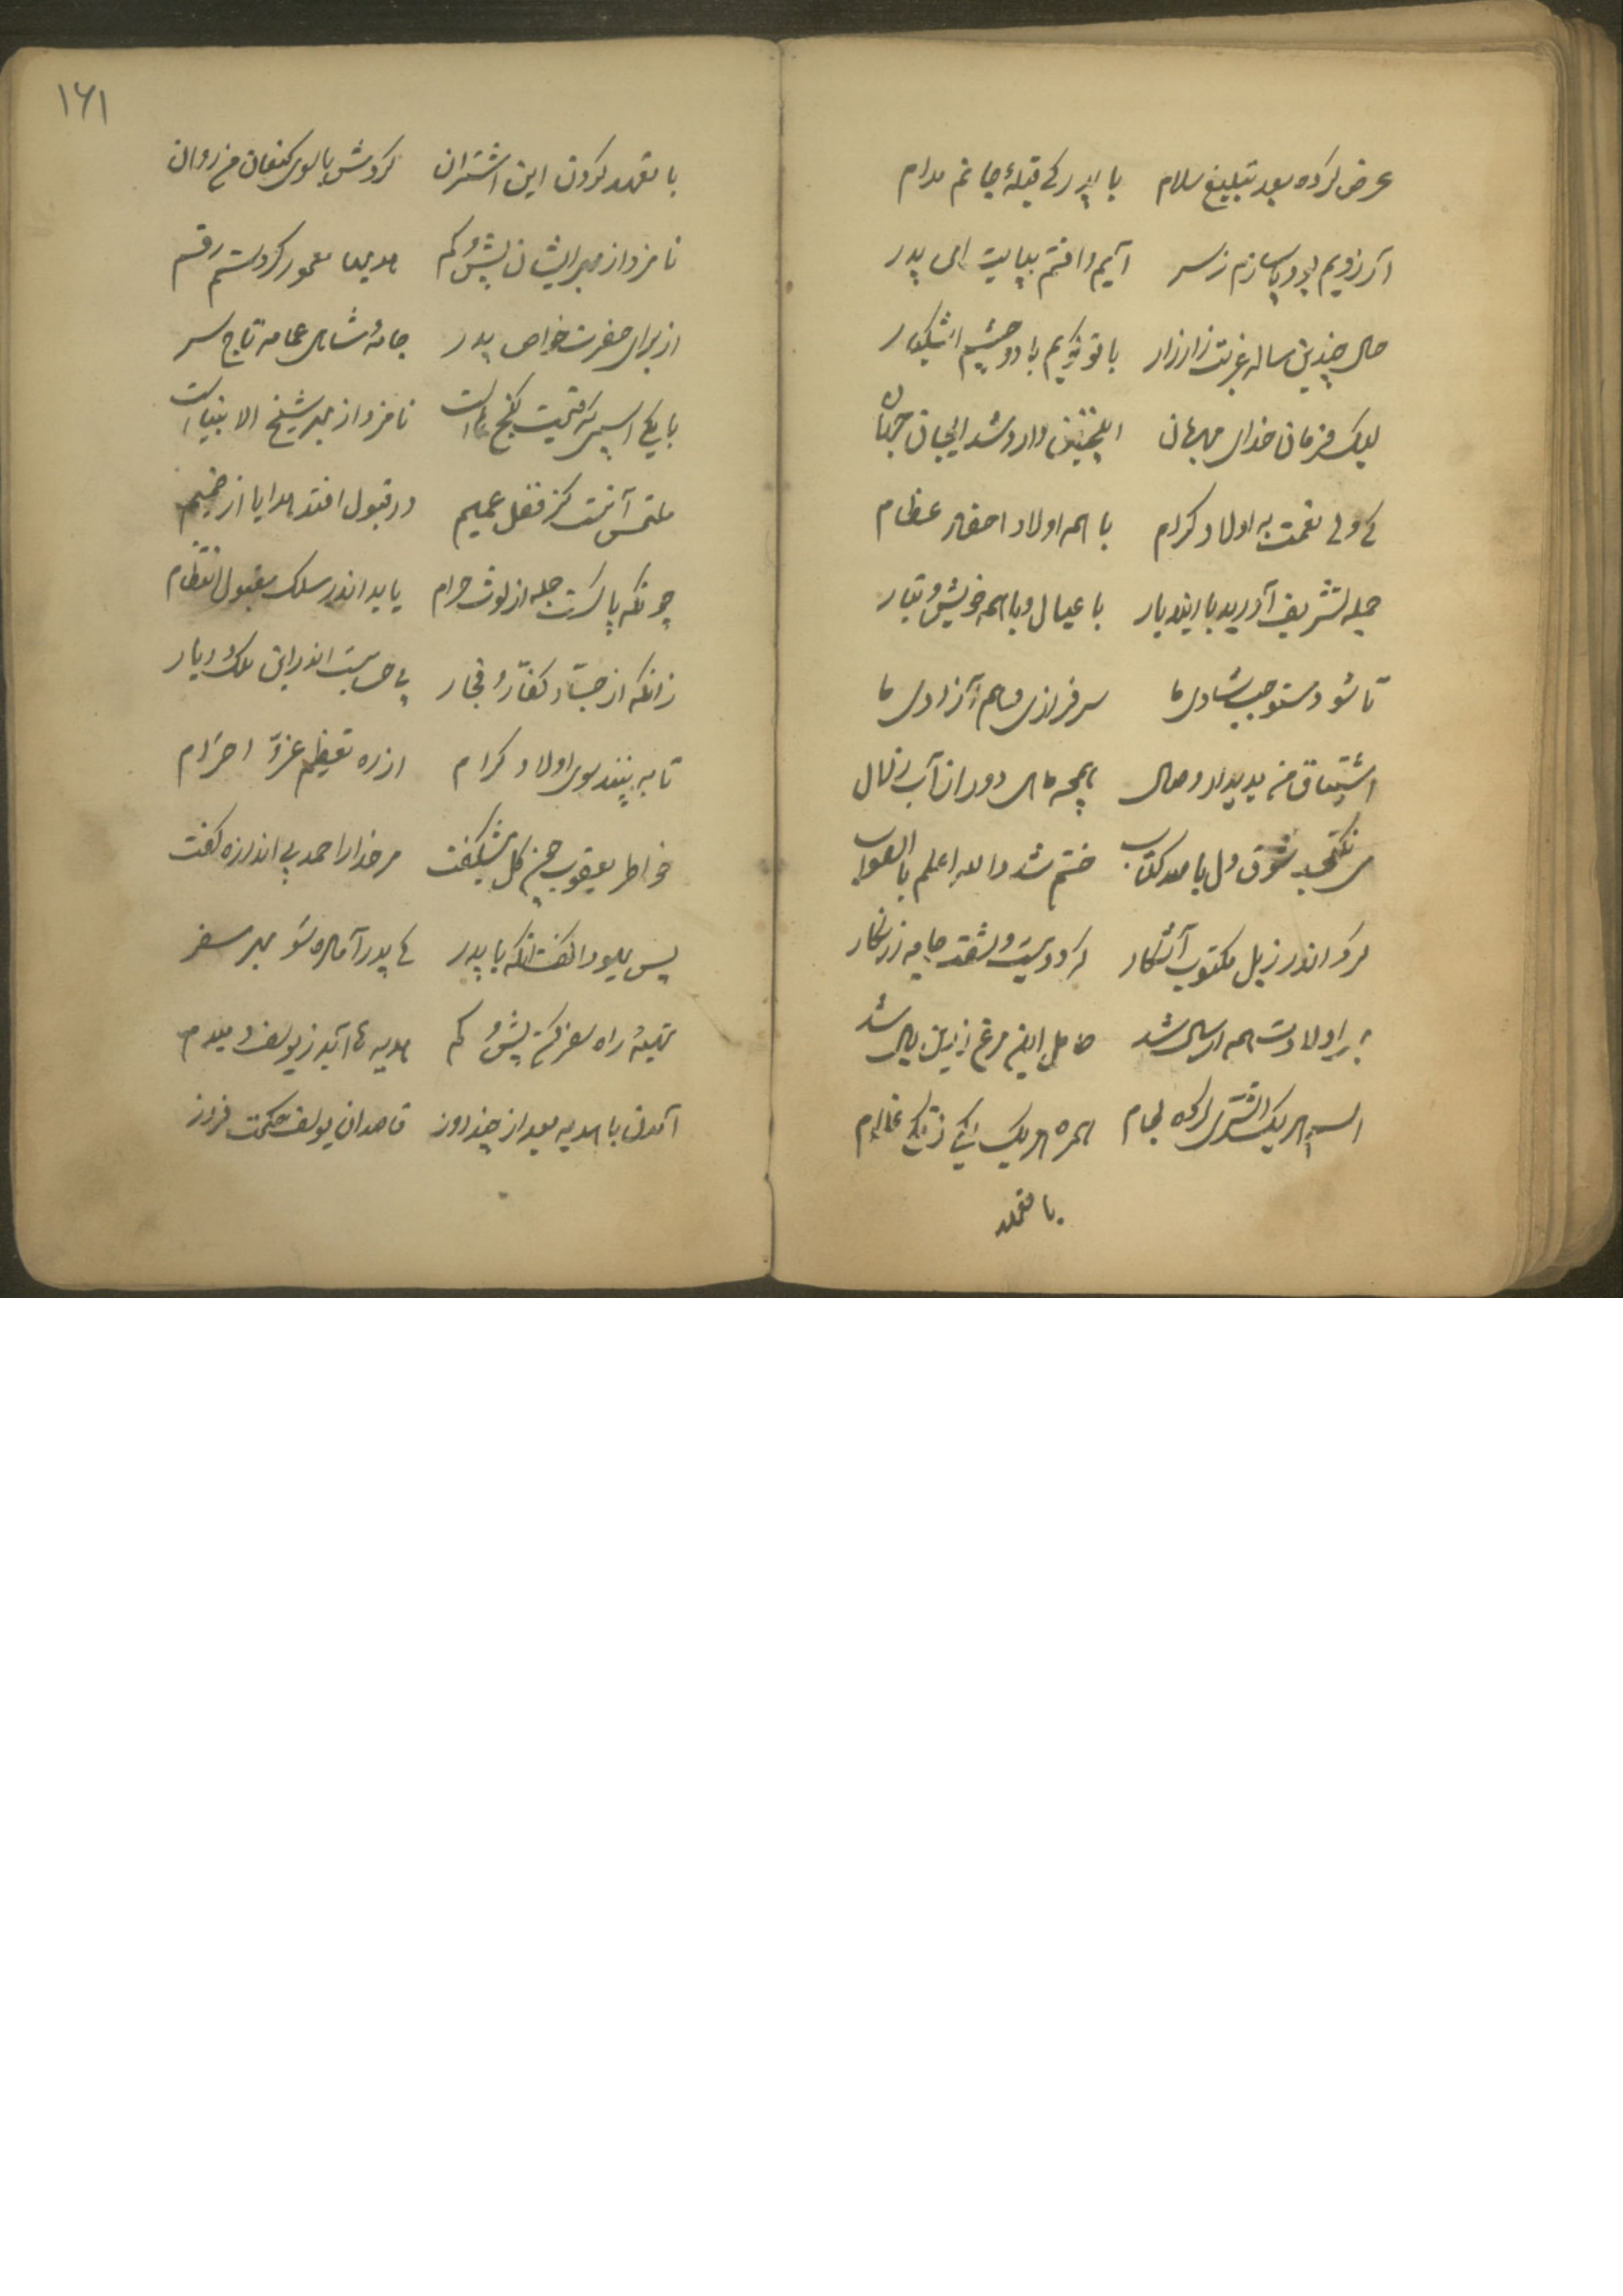 عرض کرده بعد تبلیغ سلام با پدر کے قبلهٔ جانم مدام
آرزویم بود پا سازم ز سر آیم و افتم بپایت ای پدر
حال چندین ساله غربت زار زار با تو گویم با دو چشم اشکبار
لیک فرمان خدای مهربان اینچنین وارد شد ایجان جهان
کے ولے نعمت به اولاد کرام با همه اولاد احفاد عظام
جمله تشریف آورید با ایندیار با عیال و با همه خویش و تبار
تا شود مستوجب شادی ما سرفرازی و هم آزادی ما
اشتیاق من بدیدار وصال همچه ماهی دور از آب زلال
می نگنجد شوق دل با صد کتاب ختم شد والله اعلم بالصواب
کرد اندر ذیل مکتوب آشکار که دویست و شصت جامه زرنگار
بهر اولادت همه ارسال شد حامل این مرغ زرین بال شد
اسب هر یک اشتری لجام همره هر یک یکی زنگی غلام
با قصد
۱۶۱
با تعهد کردن این اشتران کردمش با سوی کنعان من روان
نامزد از بهر ایشان بیش و کم هدیها معمور کردستم رقم
از برای حضرت خواص پدر جامهٔ شاهی عمامه تاج سر
با یکے اسپی که قیمت گنج هاست نامزد از بهر شیخ الانبیاست
ملتمس آنست کز فضل عمیم در قبول افتد هدایا از ضمیم
چونکه پاکست جمله از لوث حرام یابد اندر سلک مقبول انتظام
زانکه از حساد کفار و فجار بے حد است اندر این ملک و دیار
تا به بینند سوی اولاد کرام از ره تعظیم عز و احترام
خواطر یعقوب چون گل شگفت مر خدا را حمد بے اندازه گفت
پس یهودا گفت آنگه با پدر کے پدر آماده شو بهر سفر
تهیهٔ راه سفر کن بیش و کم هدیه ها آید ز یوسف دمبدم
آمدن با هدیه بعد از چند روز قاصدان یوسف حکمت فروز